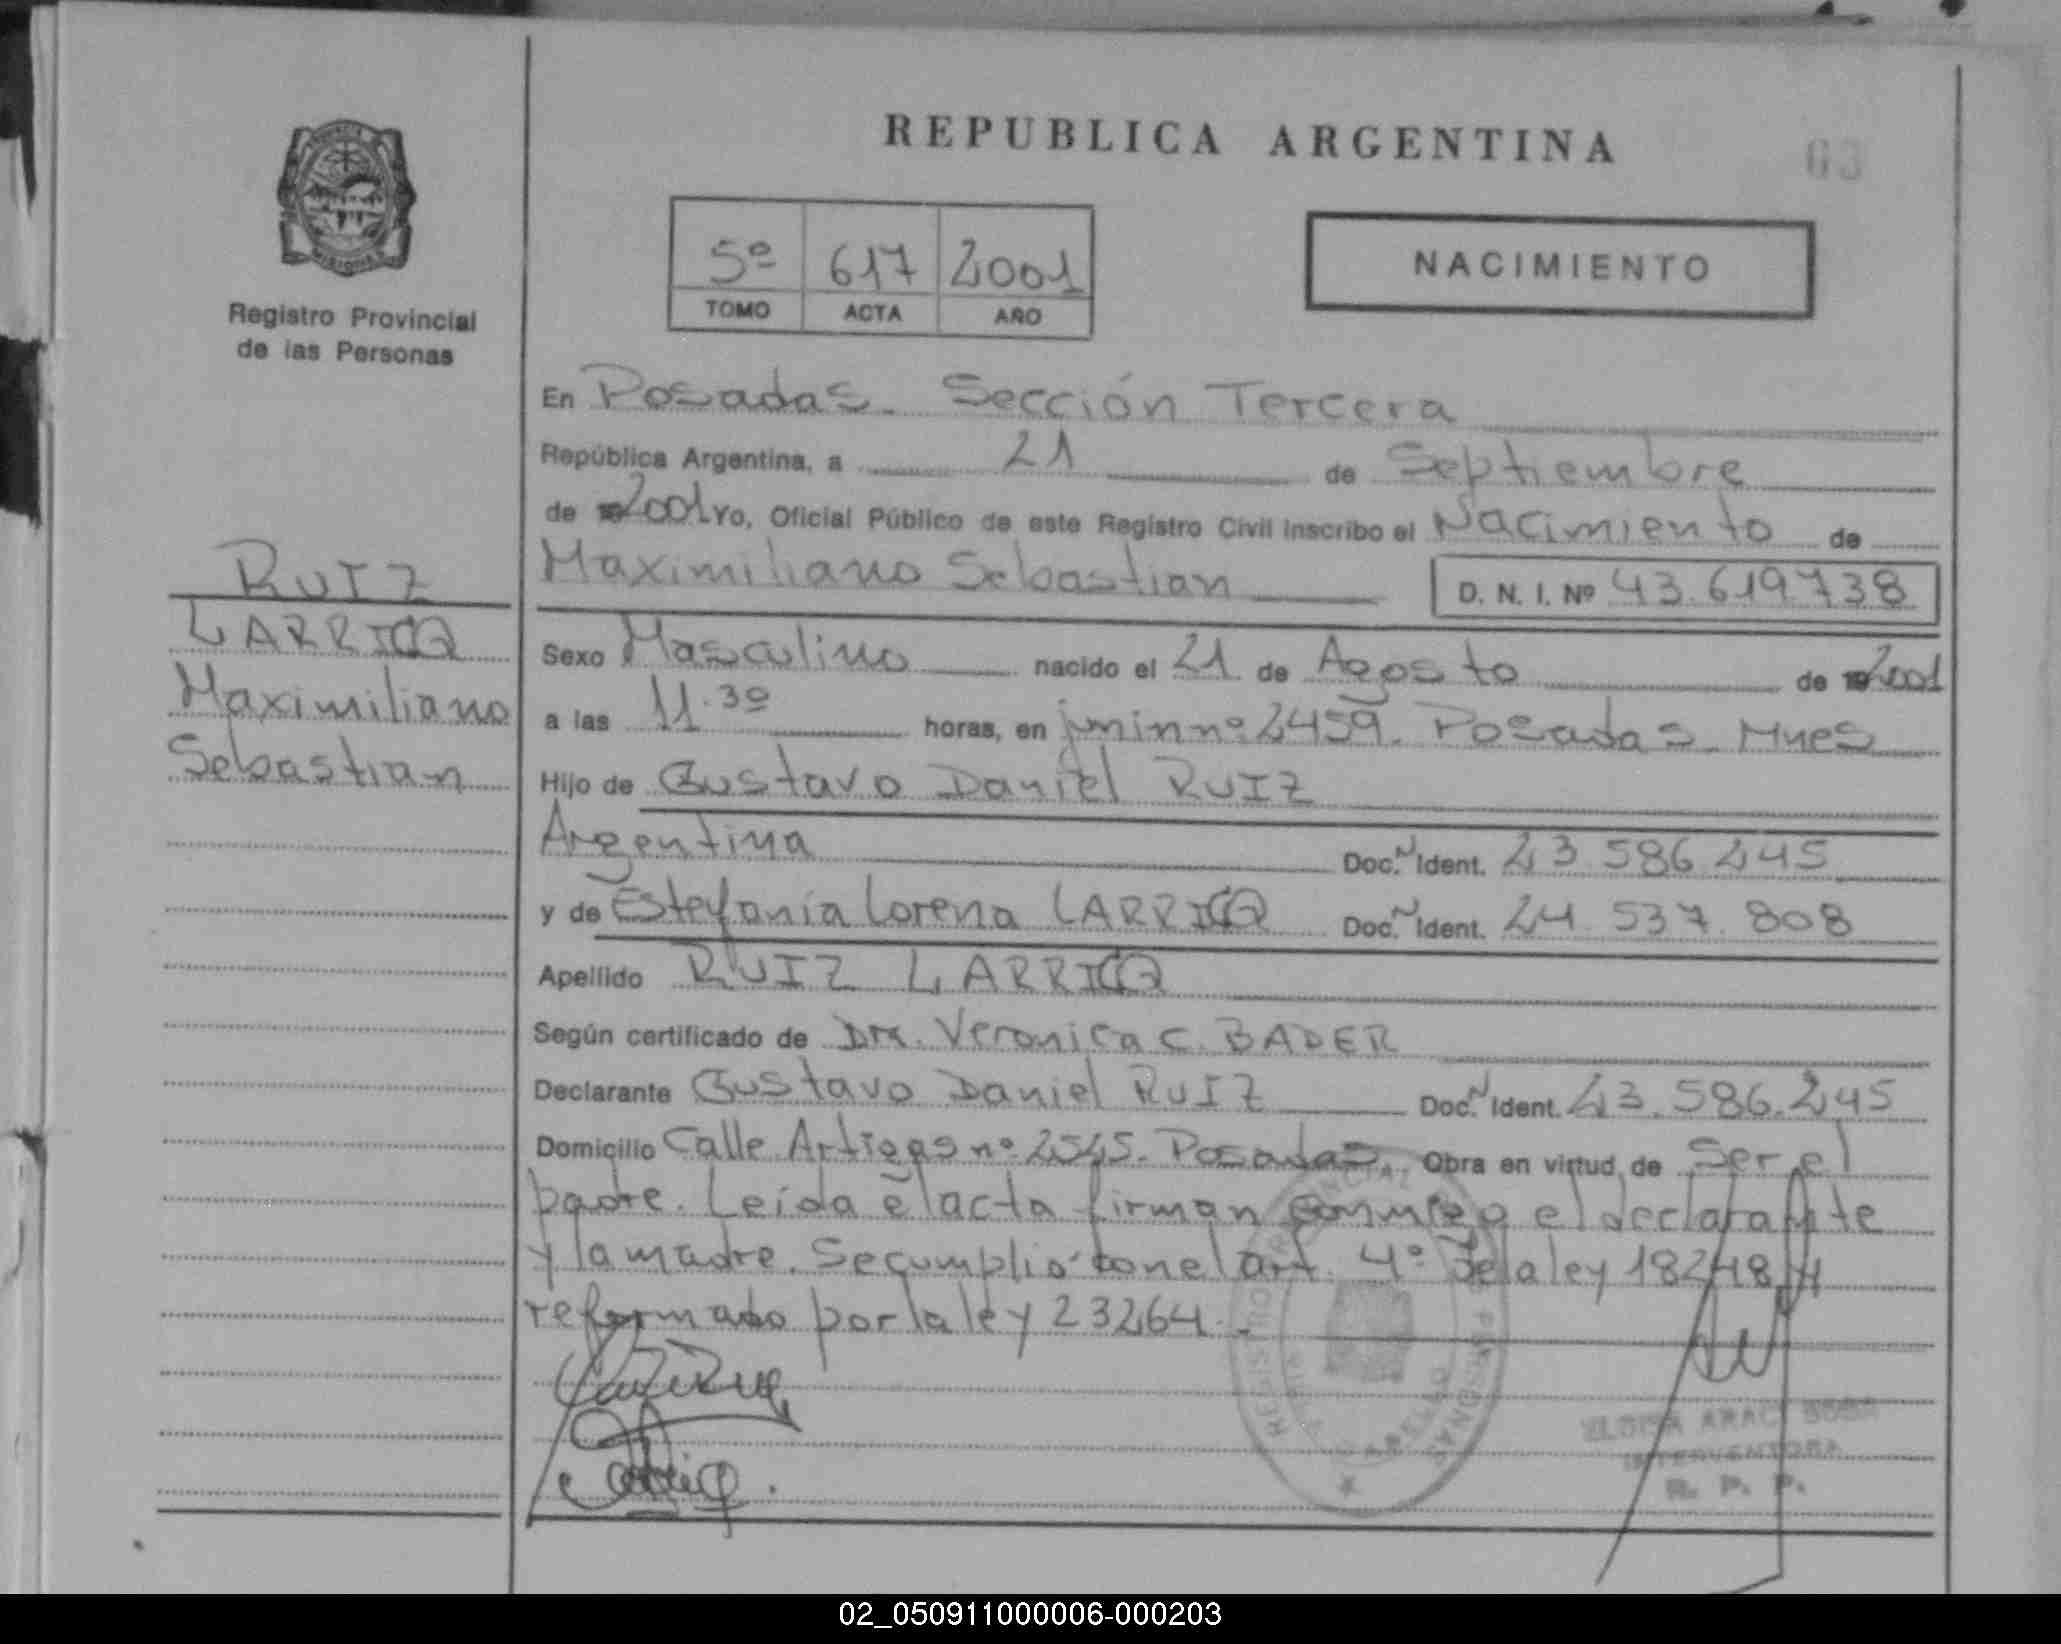 REPUBLICA ARGENTINA
63
5º 617 2001
TOMO ACTA AÑO
NACIMIENTO
MISIONES
Registro Provincial
de las Personas
RUIZ
LARRICQ
Maximiliano
Sebastian
En Posadas. Sección Tercera
República Argentina, a 21 de Septiembre
de 2001 Yo, Oficial Público de este Registro Civil inscribo el Nacimiento de
Maximiliano Sebastian D. N. I. Nº 43.619.738
Sexo Masculino nacido el 21 de Agosto de 2001
a las 11.30 horas, en junin nº 2459. Posadas. Mnes
Hijo de Gustavo Daniel RUIZ
Argentina Doc. N Ident. 23.586.245
y de Estefania Lorena LARRICQ Doc. N Ident. 24.537.808
Apellido RUIZ LARRICQ
Según certificado de Dra. Veronica C. BADER
Declarante Gustavo Daniel RUIZ Doc. N Ident. 23.586.245
Domicilio Calle Artigas nº 2545. Posadas. Obra en virtud de Ser el
padre. Leída el acta firman conmigo el declarante
y la madre. Se cumplio con el art. 4º de la ley 18248
reformado por la ley 23264.
REGISTRO PROVINCIAL PERSONAS
INTERVENTORA
R. P. P.
02_050911000006-000203